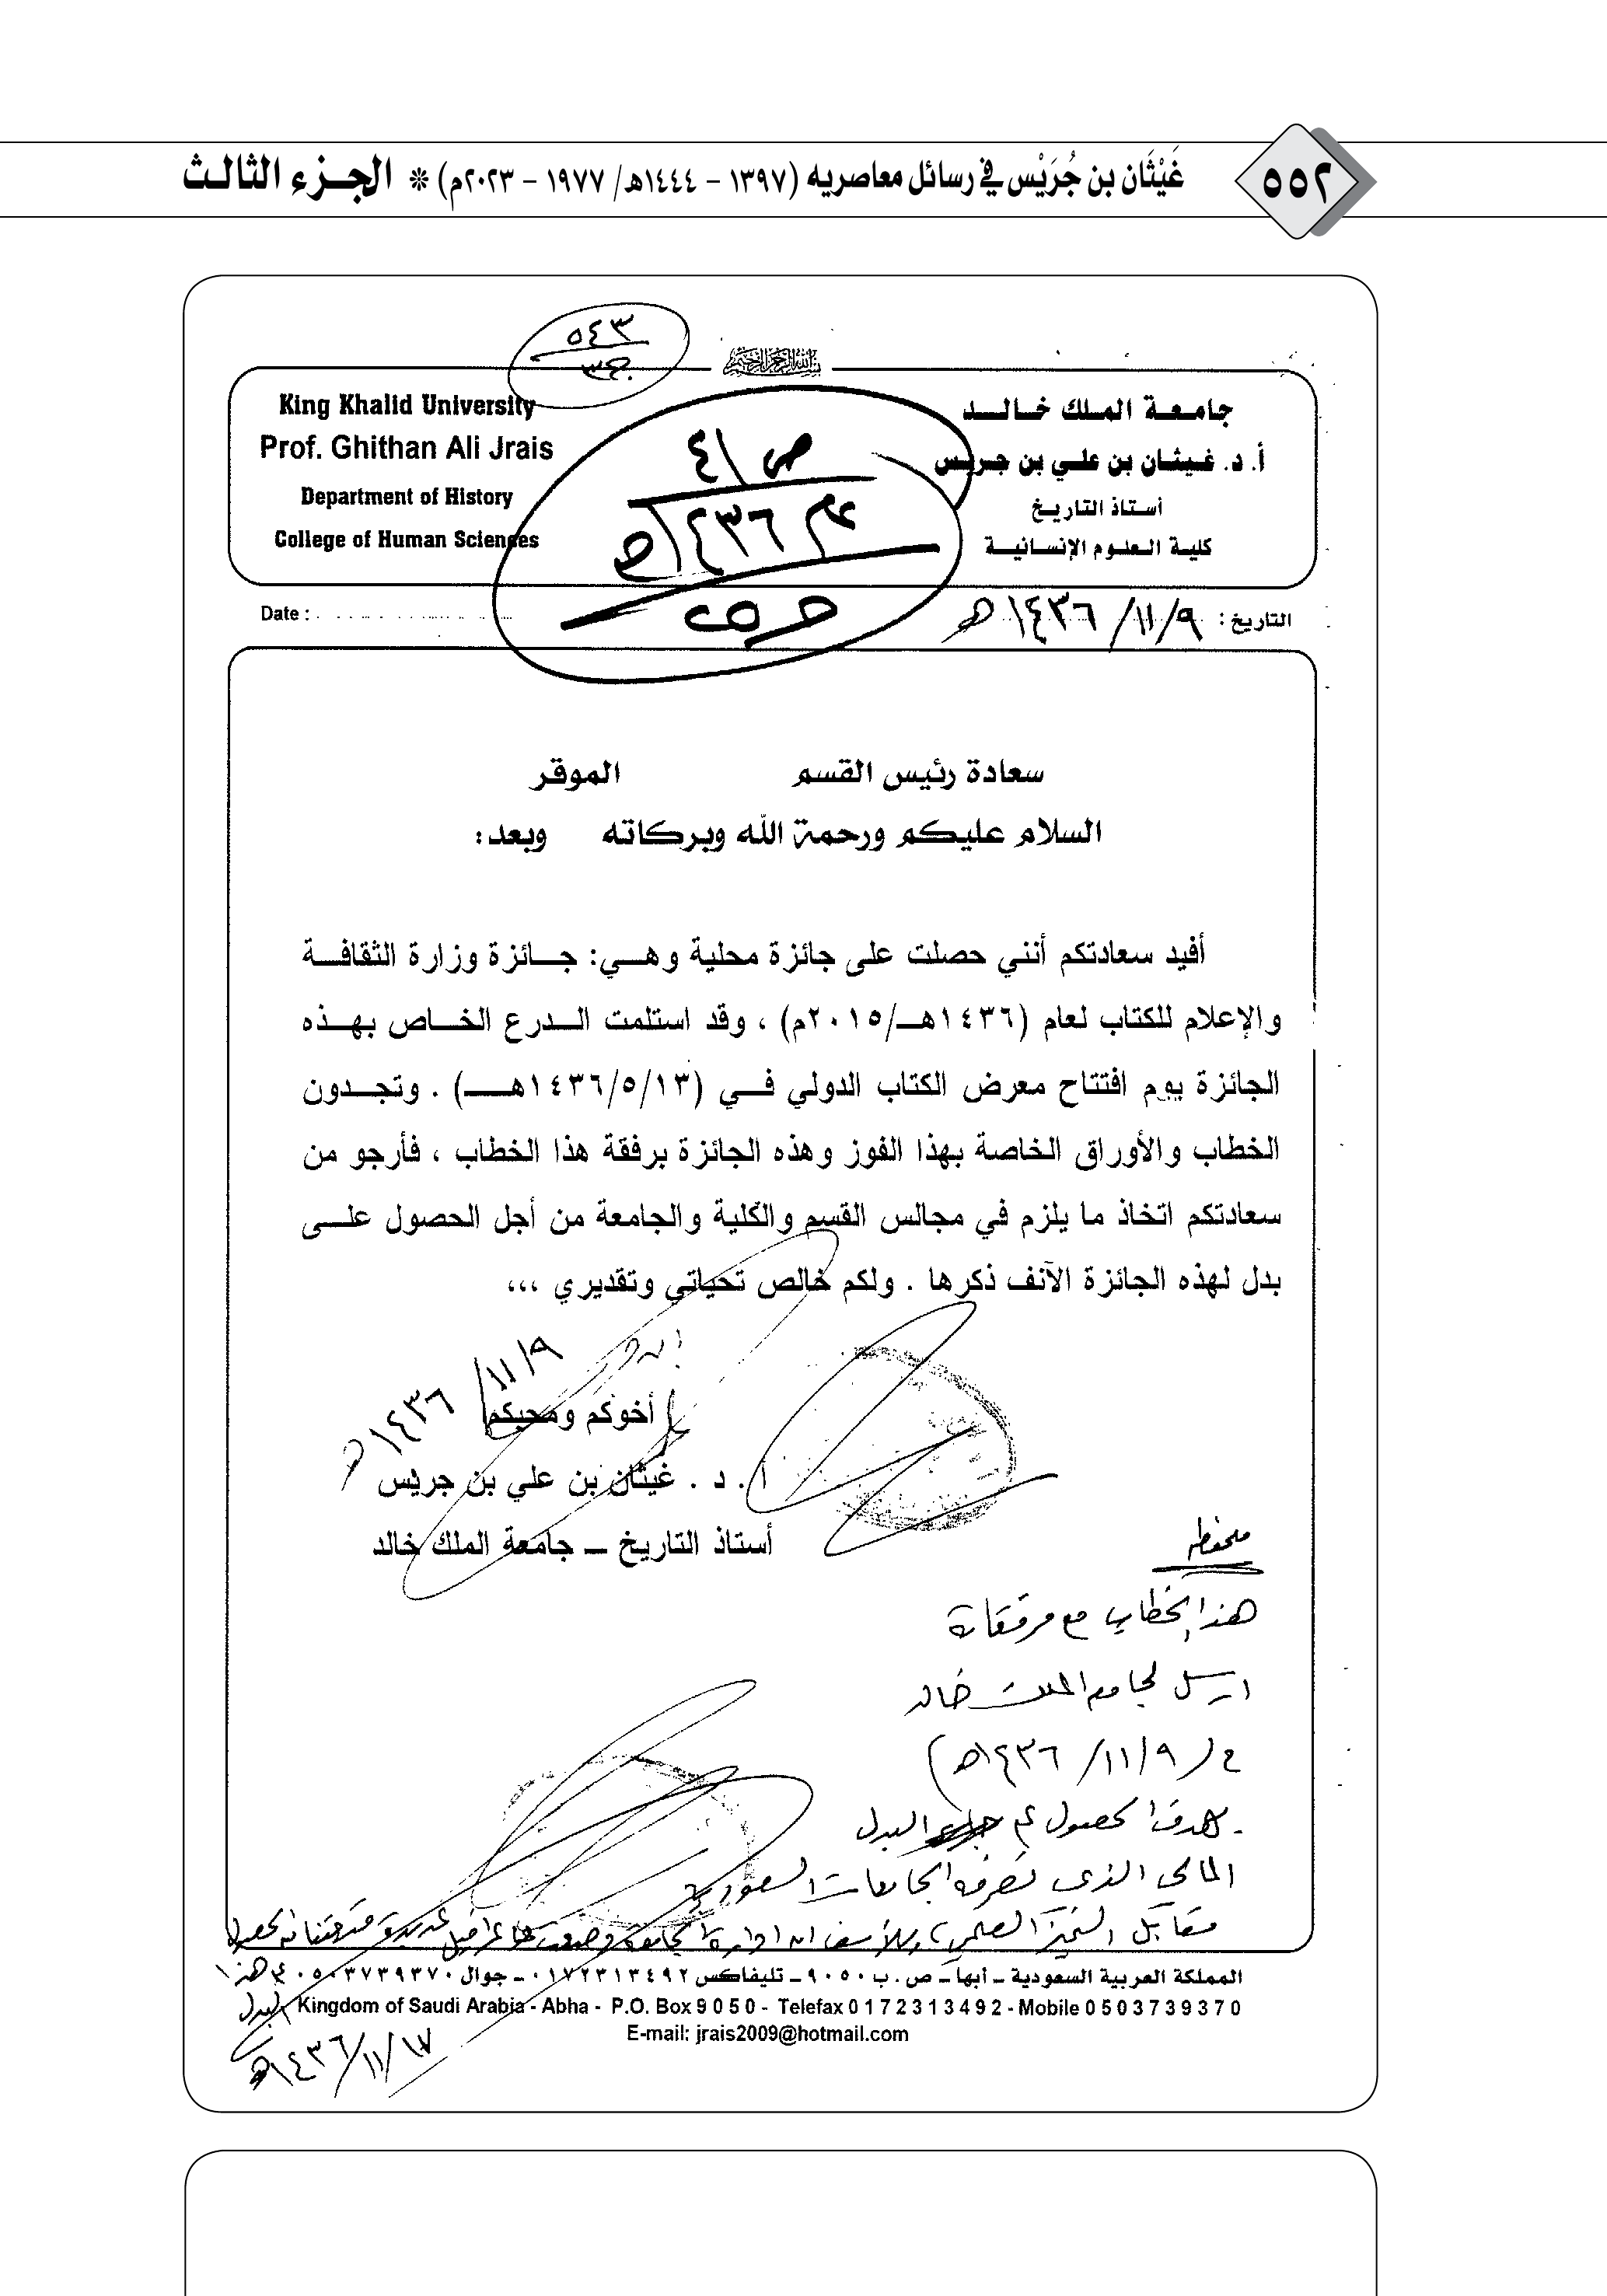 ٥٥٢
غَيْثَان بن جُرَيْس في رسائل معاصريه (١٣٩٧ - ١٤٤٤هـ/ ١٩٧٧ - ٢٠٢٣م) * الجـزء الثالث
٥٤٣
بسم الله الرحمن الرحيم
جامـعـة الملك خـالـد
أ. د. غـيـثـان بن علـي بن جـريـس
أسـتـاذ التـاريـخ
كلـيـة العـلـوم الإنـسـانـيـة
King Khalid University
Prof. Ghithan Ali Jrais
Department of History
College of Human Sciences
ص ٤١
عام ١٤٣٦هـ
التاريخ : ١٤٣٦/١١/٩هـ
Date :
سعادة رئيس القسم الموقر
السلام عليكم ورحمة الله وبركاته وبعد:
أفيد سعادتكم أنني حصلت على جائزة محلية وهي: جـائزة وزارة الثقافـة
والإعلام للكتاب لعام (١٤٣٦هـ/٢٠١٥م) ، وقد استلمت الـدرع الخـاص بهـذه
الجائزة يوم افتتاح معرض الكتاب الدولي فـي (١٤٣٦/٥/١٣هـ) . وتجـدون
الخطاب والأوراق الخاصة بهذا الفوز وهذه الجائزة برفقة هذا الخطاب ، فأرجو من
سعادتكم اتخاذ ما يلزم في مجالس القسم والكلية والجامعة من أجل الحصول علـى
بدل لهذه الجائزة الآنف ذكرها . ولكم خالص تحياتي وتقديري ،،،
١٤٣٦/١١/٩هـ
أخوكم ومحبكم
أ . د . غيثان بن علي بن جريس
أستاذ التاريخ – جامعة الملك خالد
ملحوظة
هذا الخطاب مع مرفقاته
ارسل لجامعة الملك خالد
في (١٤٣٦/١١/٩هـ)
بهدف الحصول على البدل
المالي الذي تصرفه الجامعات السعودية
مقابل التميز العلمي، وللأسف ان ادارة الجامعة وضعت عراقيل عديدة الحصول
على هذا
البدل
١٤٣٦/١١/١٧هـ
المملكة العربية السعودية ـ أبها ـ ص . ب ٩٠٥٠ ـ تليفاكس ٠١٧٢٣١٣٤٩٢ ـ جوال ٠٥٠٣٧٣٩٣٧٠
Kingdom of Saudi Arabia - Abha - P.O. Box 9 0 5 0 - Telefax 0 1 7 2 3 1 3 4 9 2 - Mobile 0 5 0 3 7 3 9 3 7 0
E-mail: jrais2009@hotmail.com